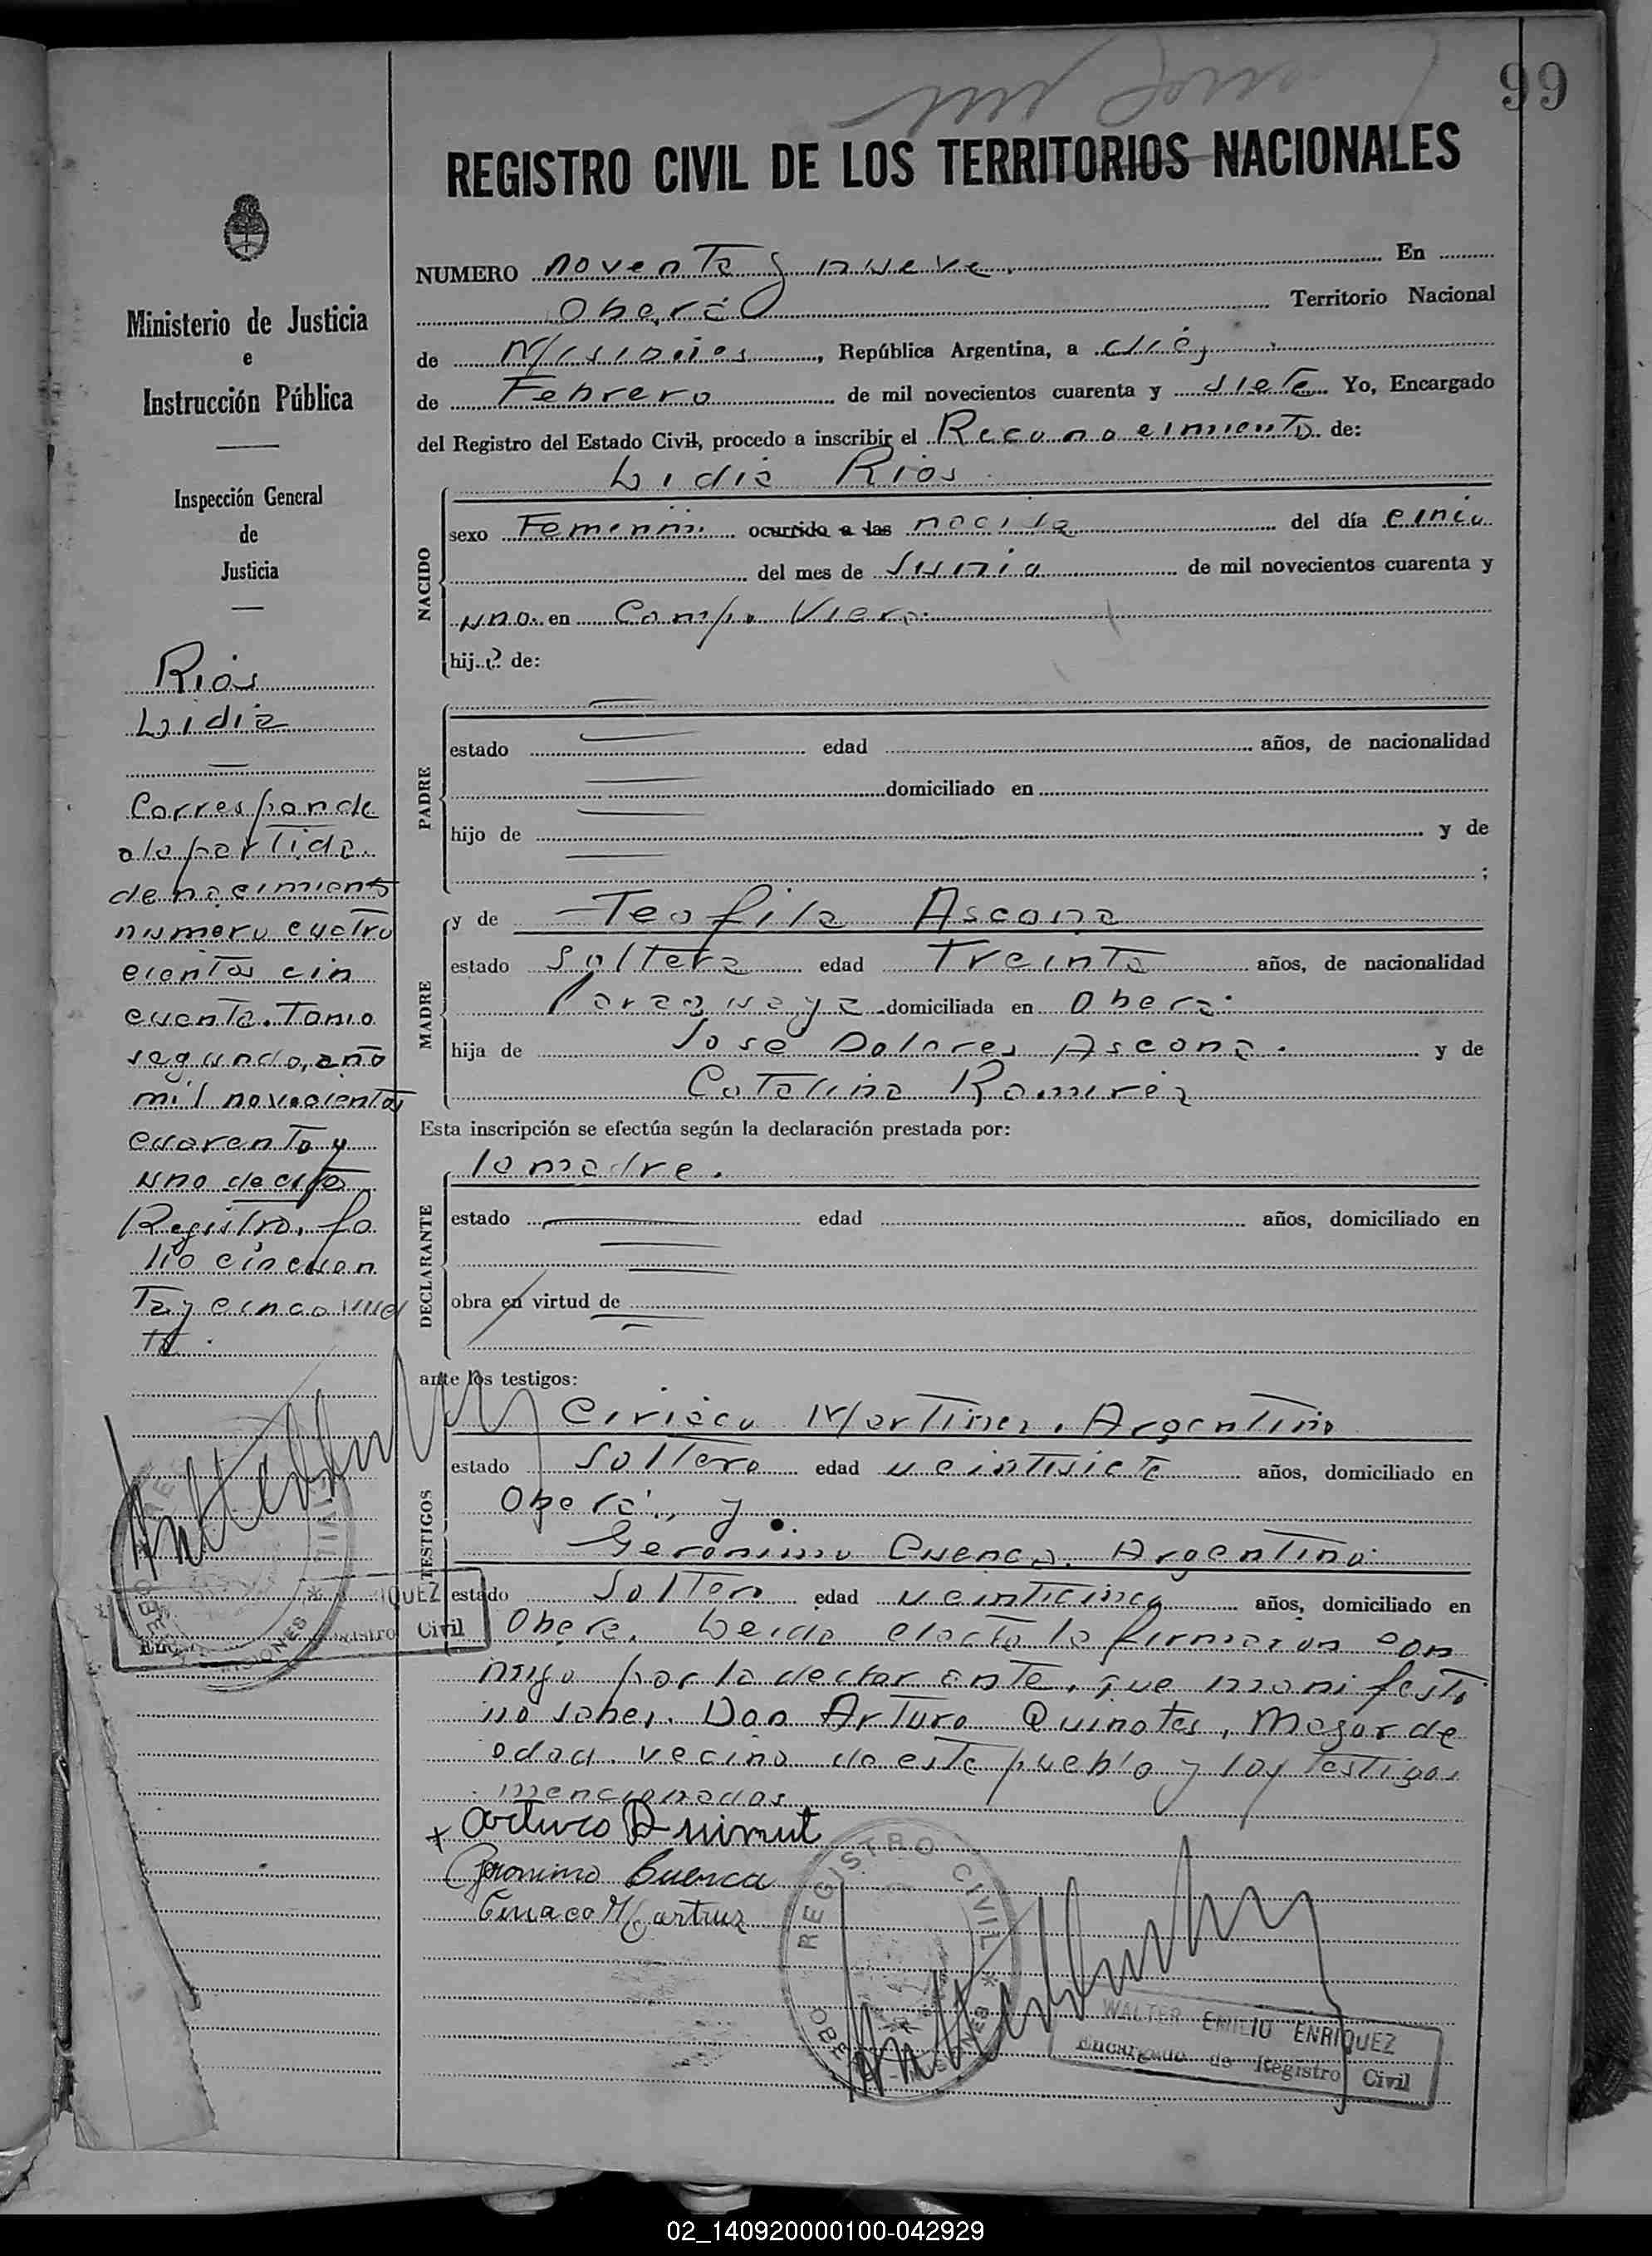 99
REGISTRO CIVIL DE LOS TERRITORIOS NACIONALES
Ministerio de Justicia
e
Instrucción Pública
Inspección General
de
Justicia
Rios
Lidia
Corresponde
a la partida
de nacimiento
numero cuatro
cientos cin
cuenta. Tomo
segundo, año
mil novecientos
cuarenta y
uno de este
Registro, fo
lio cincuen
ta y cinco vuel
ta.
QUEZ
Registro Civil
NUMERO noventa y nueve. En
Oberá Territorio Nacional
de Misiones, República Argentina, a diez
de Febrero de mil novecientos cuarenta y siete Yo, Encargado
del Registro del Estado Civil, procedo a inscribir el Reconocimiento de:
Lidia Rios
NACIDO
sexo Femenino ocurrido a las nacida del día cinco
del mes de Junio de mil novecientos cuarenta y
uno. en Campo Viera.
hija de:
PADRE
estado edad años, de nacionalidad
domiciliado en
hijo de y de
;
MADRE
y de Teofila Ascona
estado Soltera edad Treinta años, de nacionalidad
Paraguaya domiciliada en Oberá.
hija de José Dolores Ascona. y de
Catalina Ramirez
Esta inscripción se efectúa según la declaración prestada por:
DECLARANTE
la madre.
estado edad años, domiciliado en
obra en virtud de
ante los testigos:
TESTIGOS
Ciriaco Martinez, Argentino
estado Soltero edad veintisiete años, domiciliado en
Oberá, y
Geronimo Cuenca, Argentino
estado Soltero edad veinticinco años, domiciliado en
Oberá. Leida el acta la firmaron con
migo por la declarante, que manifestó
no saber, Don Arturo Quinotes, Mayor de
edad, vecino de este pueblo y los testigos
mencionados
+ Arturo
Geronimo Cuenca
Ciriaco Martinez
REGISTRO CIVIL
WALTER EMILIO ENRIQUEZ
Encargado de Registro Civil
02_140920000100-042929